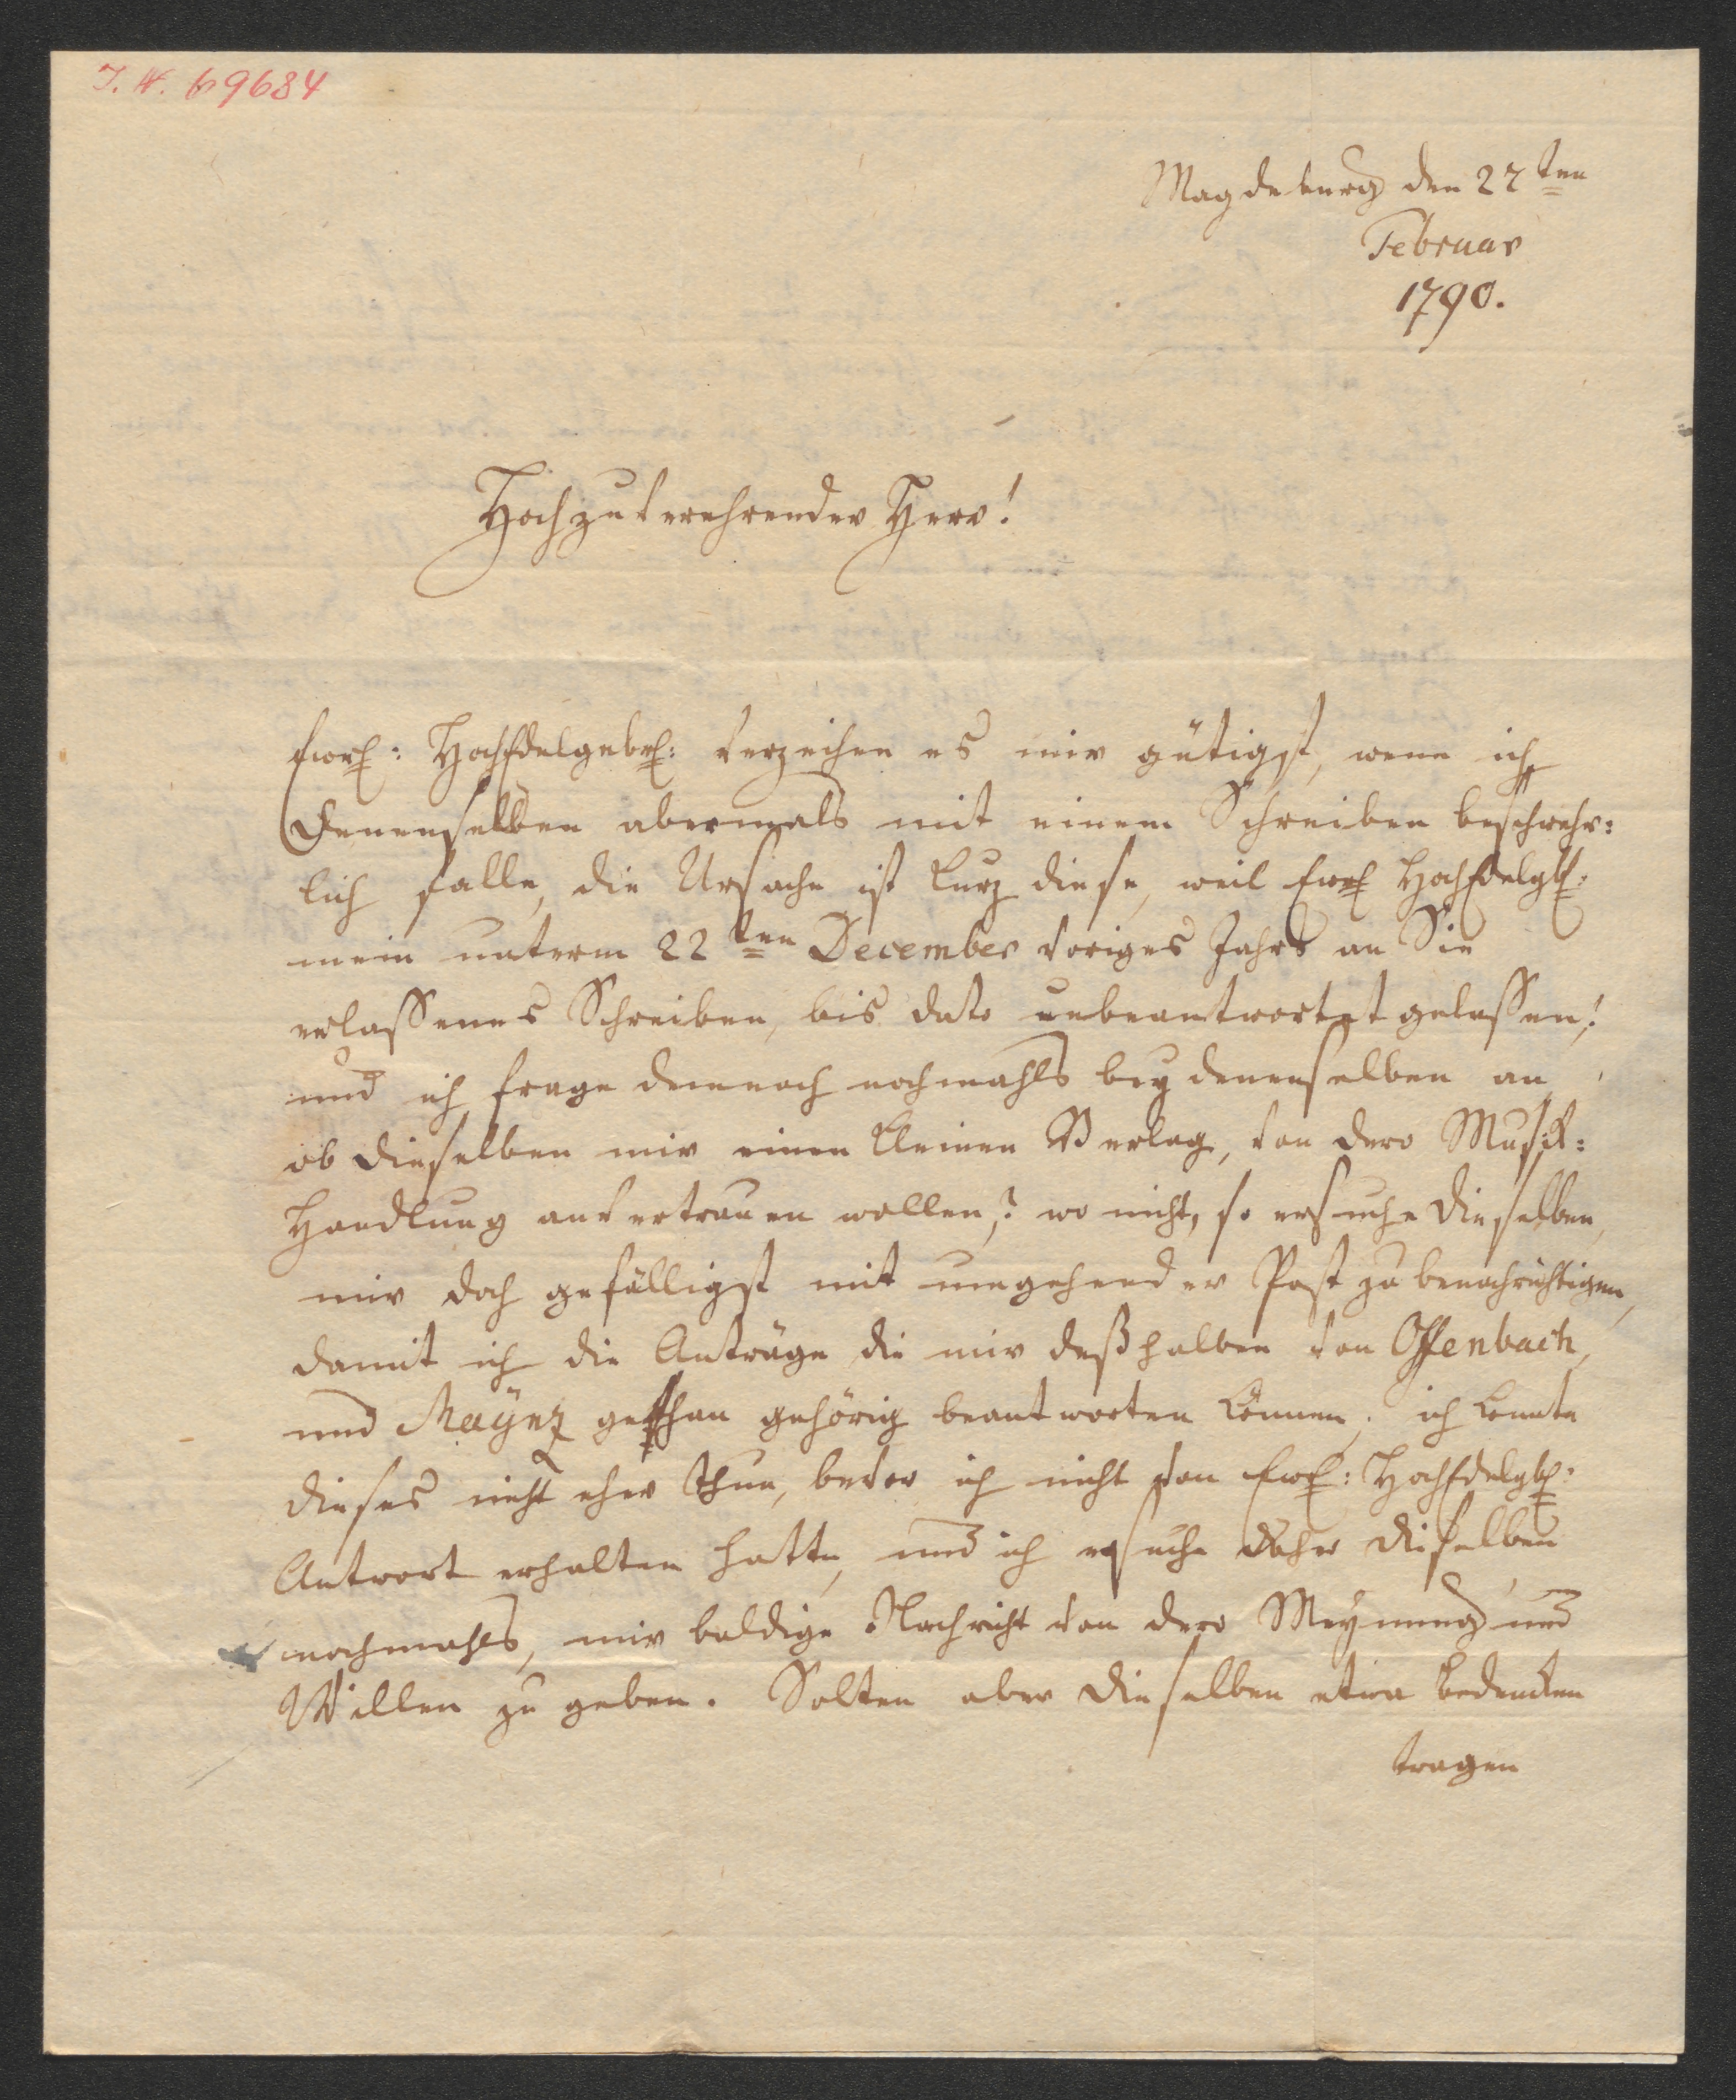 I. N. 69684
Magdeburg den 27ten
Februar
1790.
Hochzuverehrender Herr!
Ewr: HochEdelgebr: verzeihen es mir gütigst, wenn ich
Denenselben abermals mit einem Schreiben beschwehr:
lich falle, die Ursache ist kurz diese, weil Ewr HochEdelgb:
mein unterm 22ten December voriges Jahrs an Sie
erlassenes Schreiben, bis dato unbeantwortet gelassen,!
und ich frage demnach nochmahls bey denenselben an,
ob dieselben mir einen kleinen Verlag, von dero Musik:
Handlung anvertrauen wollen,? wo nicht, so ersuche dieselben,
mir doch gefälligst mit umgehender Post zu benachrichtigen,
damit ich die Anträge die mir deßhalben von Offenbach,
und Maynz gethan gehörig beantworten können, ich konnte
dieses nicht eher thun, bevor ich nicht von Ewr: HochEdelgb:
Antwort erhalten hatte, und ich ersuche daher dieselben
nochmahls, mir baldige Nachricht von dero Meynung und
Willen zu geben. Solten aber dieselben etwa bedencken
tragen